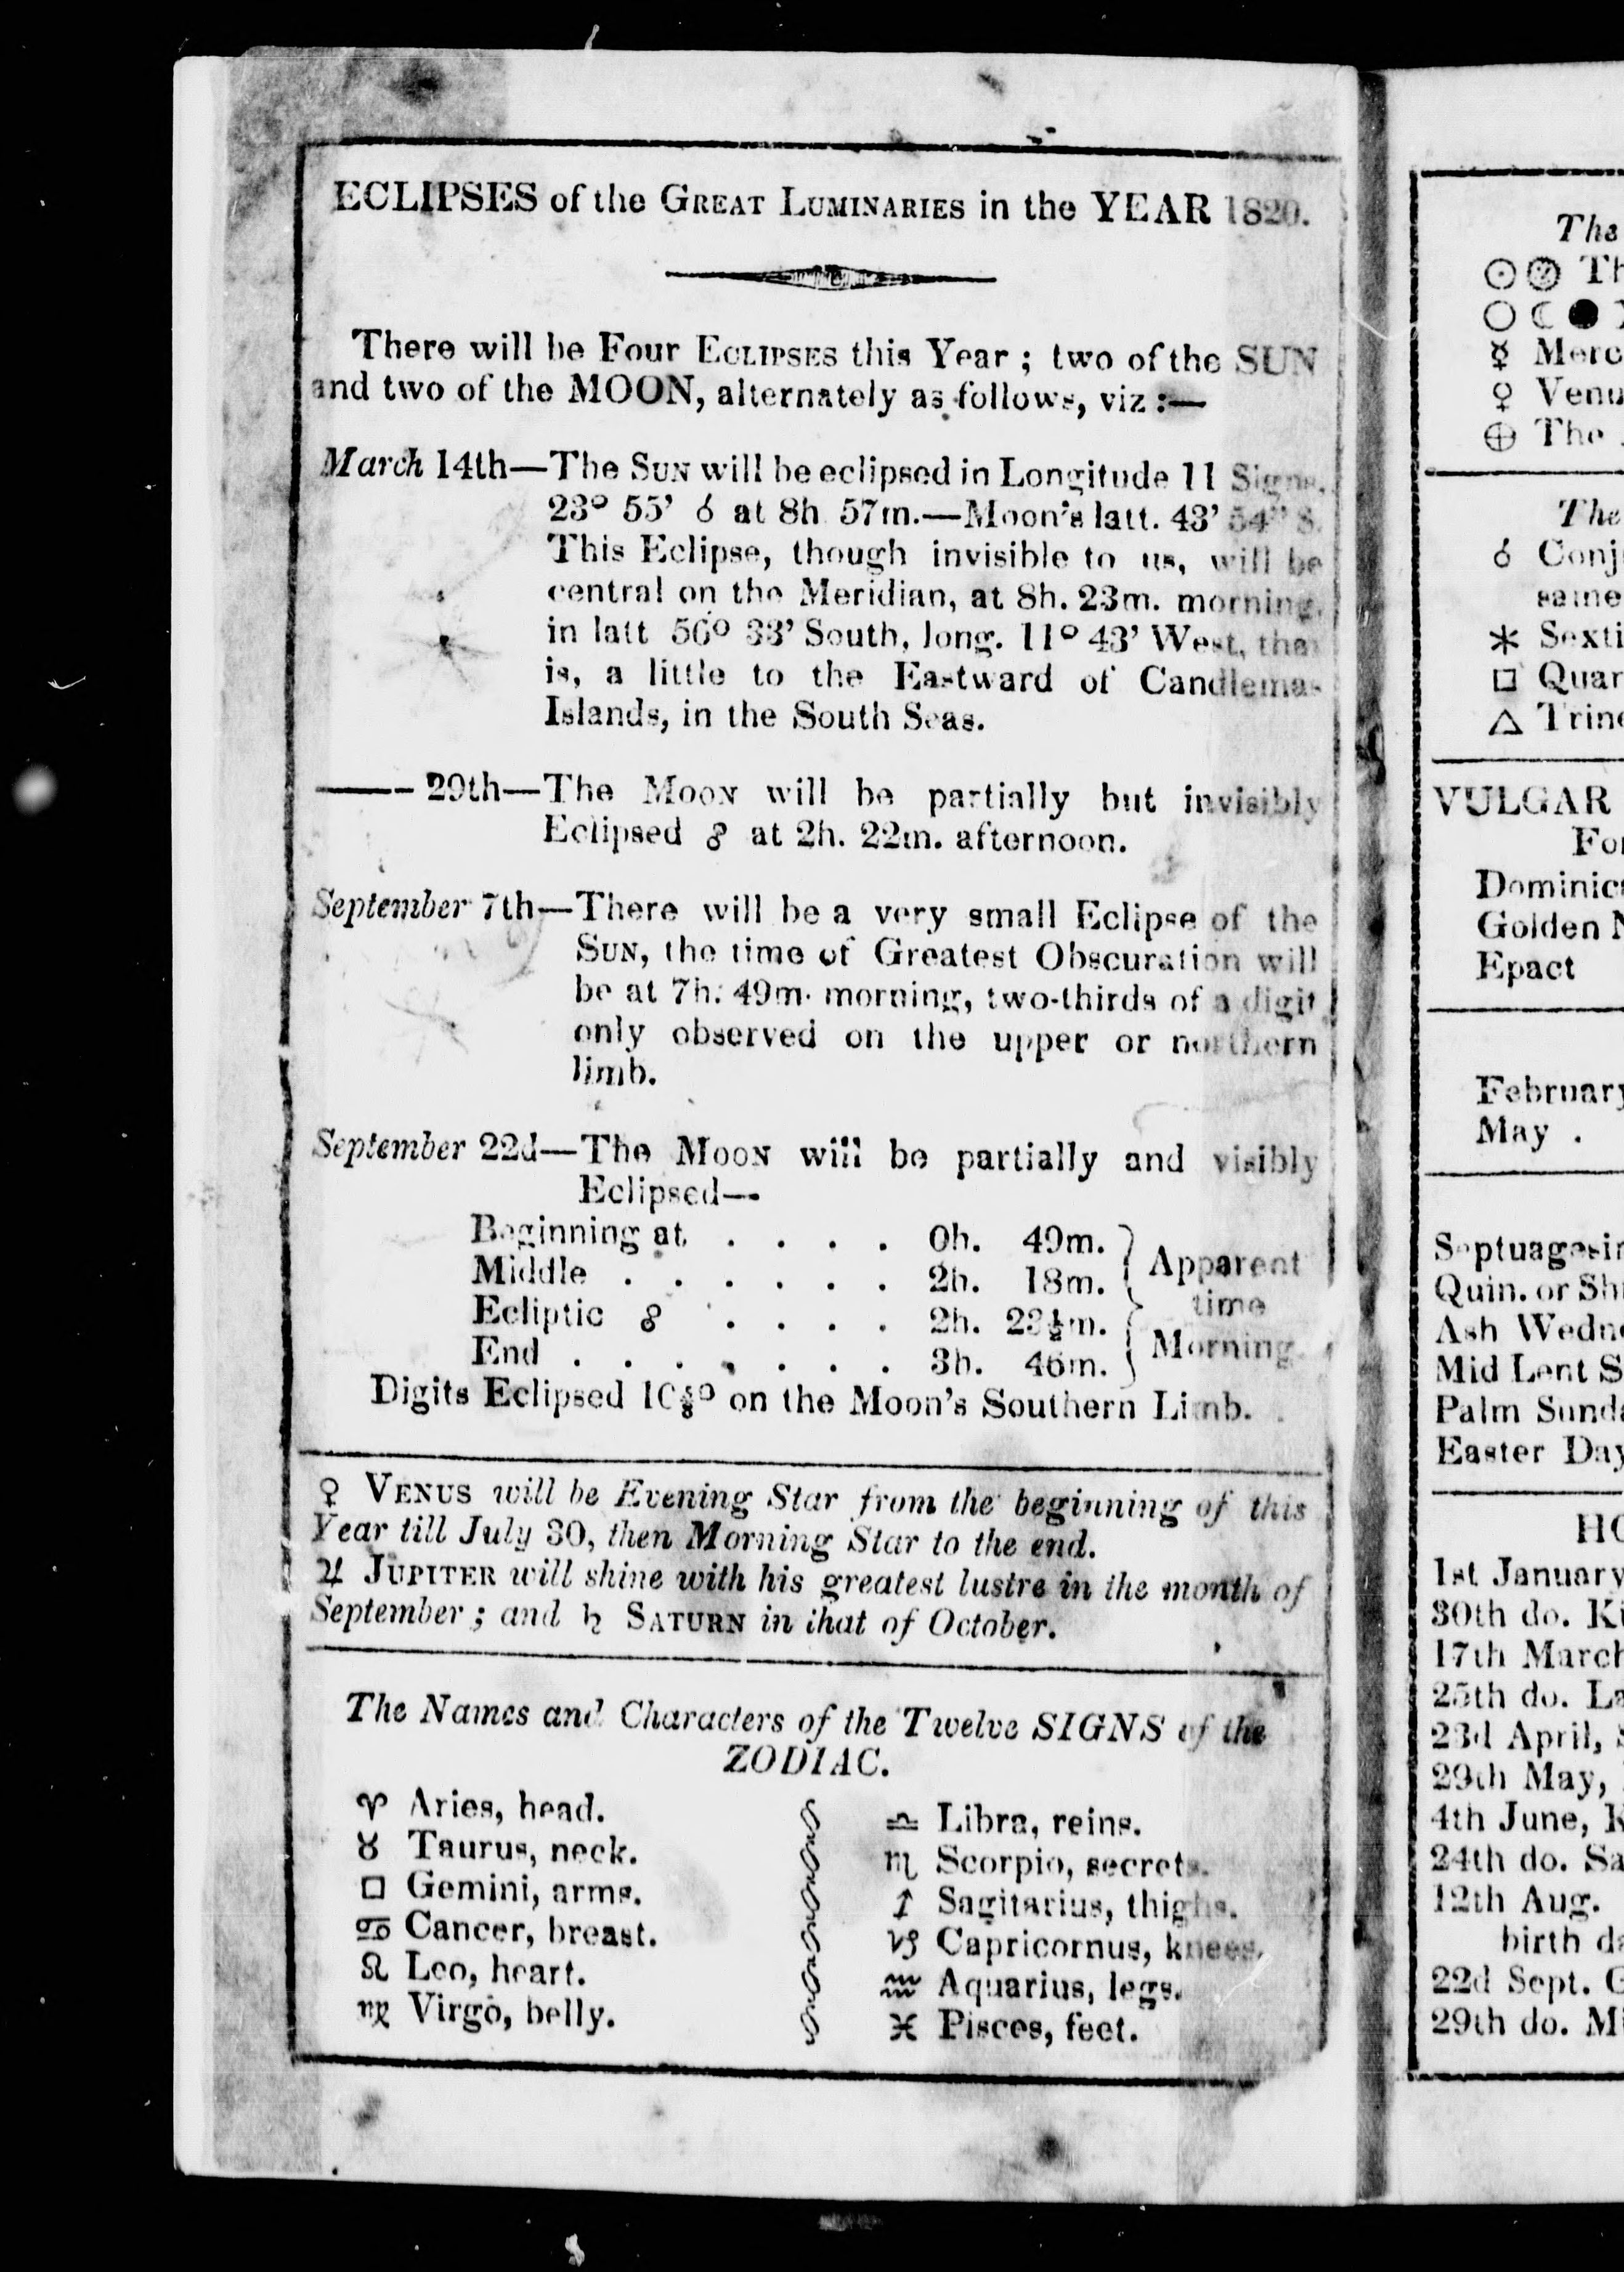 ECLIPSES of the GREAT LUMINARIES in the YEAR 1820.
There will be Four ECLIPSES this Year ; two of the SUN
and two of the MOON, alternately as follows, viz :—
March 14th—The SUN will be eclipsed in Longitude 11 Signs,
23° 55' ☌ at 8h 57m.—Moon's latt. 43' 54" S.
This Eclipse, though invisible to us, will be
central on the Meridian, at 8h. 23m. morning,
in latt 56° 33' South, long. 11° 43' West, that
is, a little to the Eastward of Candlemas
Islands, in the South Seas.
—— 29th—The MOON will be partially but invisibly
Eclipsed ☍ at 2h. 22m. afternoon.
September 7th—There will be a very small Eclipse of the
SUN, the time of Greatest Obscuration will
be at 7h. 49m. morning, two-thirds of a digit
only observed on the upper or northern
limb.
September 22d—The MOON will be partially and visibly
Eclipsed—
Beginning at . . . . 0h. 49m.
Middle . . . . . . 2h. 18m.
Ecliptic ☍ . . . . 2h. 23½m.
End . . . . . . . 3h. 46m.
Apparent
time
Morning.
Digits Eclipsed on the Moon's Southern Limb.
♀ VENUS will be Evening Star from the beginning of this
Year till July 30, then Morning Star to the end.
♃ JUPITER will shine with his greatest lustre in the month of
September ; and ♄ SATURN in that of October.
The Names and Characters of the Twelve SIGNS of the
ZODIAC.
♈ Aries, head.
♉ Taurus, neck.
□ Gemini, arms.
♋ Cancer, breast.
♌ Leo, heart.
♍ Virgo, belly.
♎ Libra, reins.
♏ Scorpio, secrets.
♐ Sagitarius, thighs.
♑ Capricornus, knees.
♒ Aquarius, legs.
♓ Pisces, feet.
The
☉ Th
○ ☾ ●
☿ Merc
♀ Venu
⊕ The
The
☌ Conj
same
* Sexti
□ Quar
△ Trin
VULGAR
For
Dominic
Golden N
Epact
February
May .
Septuagesi
Quin. or Sh
Ash Wedn
Mid Lent S
Palm Sund
Easter Day
HO
1st January
30th do. Ki
17th March
25th do. La
23d April, S
29th May,
4th June, K
24th do. Sa
12th Aug.
birth da
22d Sept. G
29th do. Mi